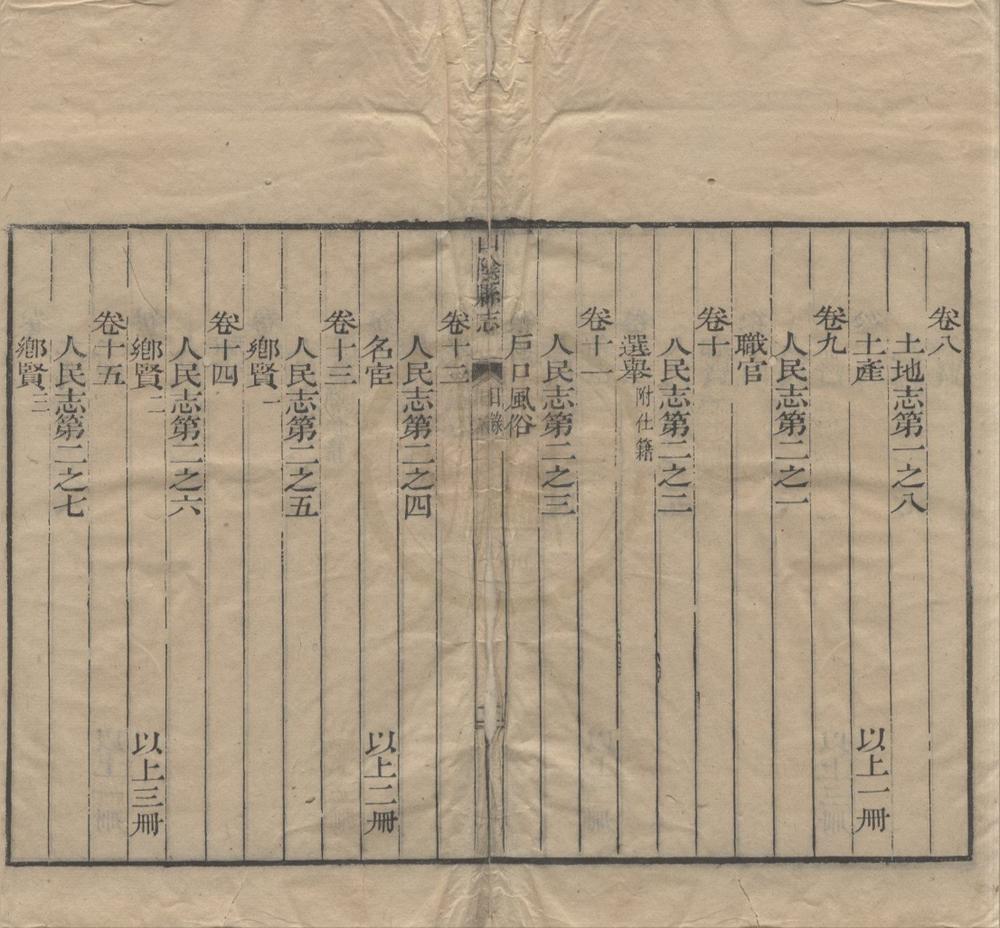 卷八
土地志第一之八
土產 以上一冊
卷九
人民志第二之一
職官
卷十
人民志第二之二
選舉附仕籍
卷十一
人民志第二之三
戶口風俗
山陰縣志 目錄
卷十二
人民志第二之四
名宦 以上二冊
卷十三
人民志第二之五
鄉賢一
卷十四
人民志第二之六
鄉賢二 以上三冊
卷十五
人民志第二之七
鄉賢三